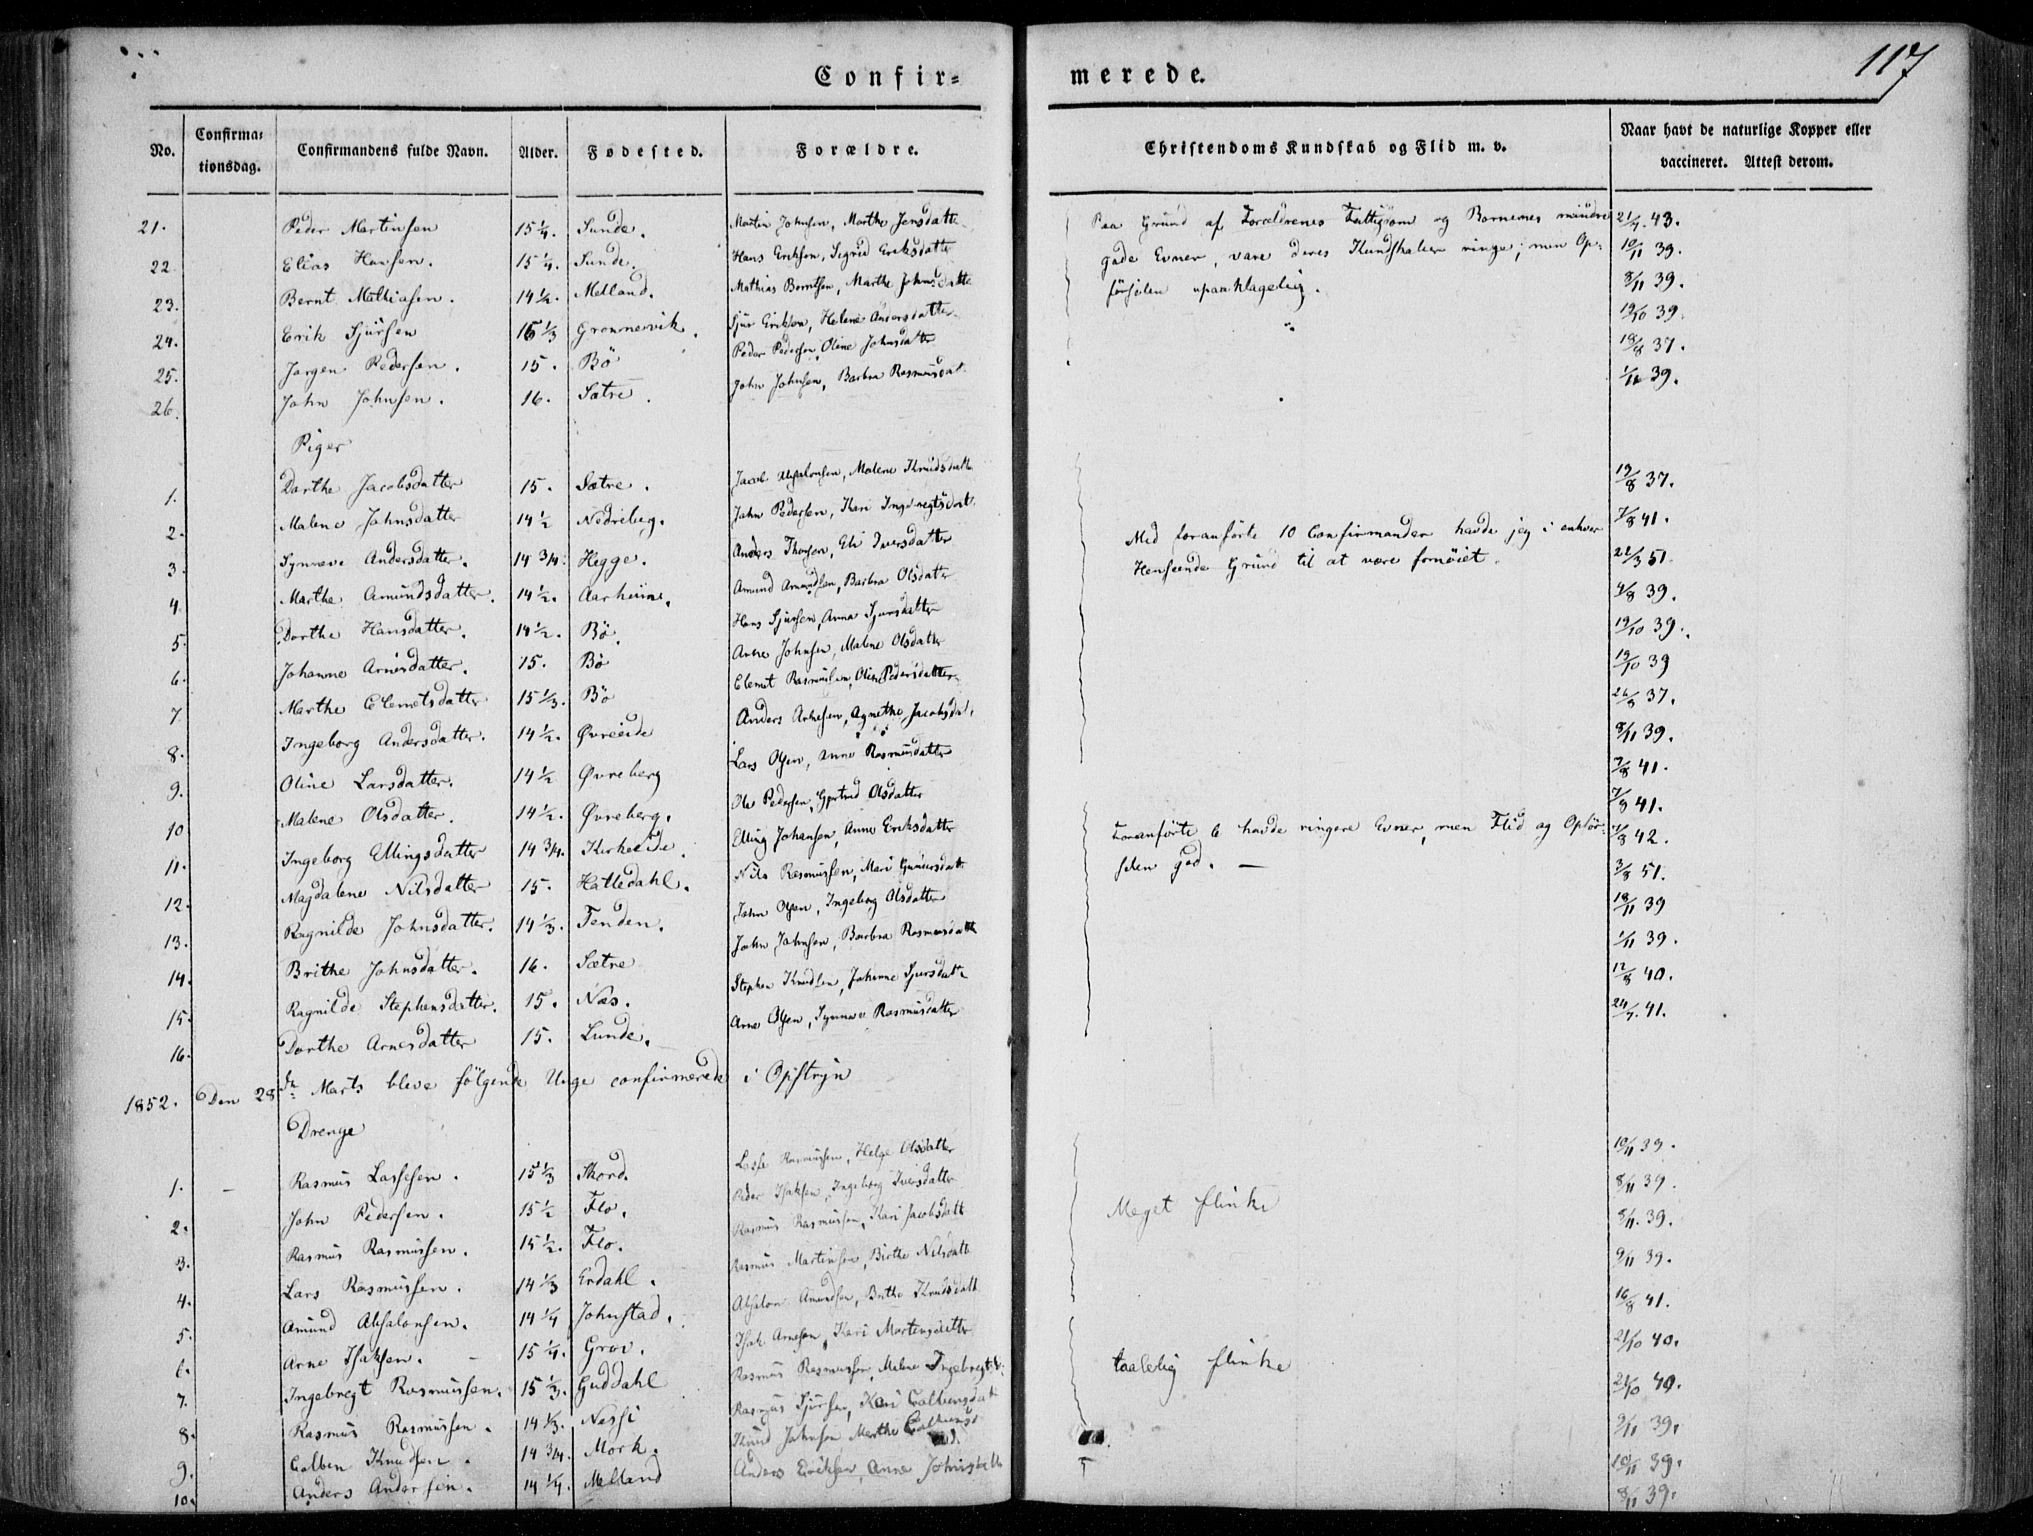 Confir=
merede.
117
No. Confirma= tionsdag. Confirmandens fulde Navn. Alder. Fødested. Forældre. Christendoms Kundskab og Flid m. v. Naar havt de naturlige Kopper eller vaccineret. Attest derom.
21. Peder Martinsen 15 1/4. Sunde. Martin Johnsen, Marthe Jensdatte Paa Grund af Forældrenes Fattigdom og Børnenes mindre 21/7. 43.
22 Elias Hansen. 15 1/4. Sunde. Hans Eriksen, Sigrid Eriksdatter gode Evner, vare deres Kundskaber ringe; men Op= 10/11 39.
23. Bernt Mathiasen. 14 1/2. Melland. Mathias Berntsen, Marthe Johnsdatte førselen upaaklagelig. 8/11 39.
24. Erik Sjursen 15 1/3 Grønnevik. Sjur Eriksen, Helene Andersdatter 19/10 39.
25. Jørgen Pedersen. 15. Bö Peder Pedersen, Oline Johnsdatter 18/8 37.
26. John Johnsen. 16. Sætre. John Johnsen, Barbra Rasmusdat 1/11 39.
Piger
1. Dorthe Jacobsdatter 15. Sætre. Jacob Absalonsen, Malene Knudsdatt 19/8 37.
2. Malene Johnsdatter 14 1/2 Nedreberg. John Pedersen, Kari Ingebregtsdat. 7/8 41.
3. Synneve Andersdatter. 14 3/4. Hegge. Anders Thorsen, Eli Iversdatter Med foranførte 10 Confirmander havde jeg i enhver 22/3 51.
4. Marthe Amundsdatter. 14 1/2. Aarheim. Amund Amundsen, Barbra Olsdatter Henseende Grund til at være fornøiet. 4/8 39.
5. Dorthe Hansdatter. 14 1/2. Bö. Hans Sjursen, Anna Sjursdatter 19/10 39.
6. Johanne Arnesdatter. 15. Bö Arne Johnsen, Malene Olsdatter 19/10 39
7. Marthe Clemetsdatter 15 1/3. Bö Clemet Rasmussen, Oline Pedersdatter 22/8 37.
8. Ingeborg Andersdatter. 14 1/2. Øvreeide Anders Arnesen, Agnethe Jacobsdat. 8/11 39.
9. Oline Larsdatter. 14 1/2 Øvreberg Lars Olsen, Anne Rasmusdatter 7/8 41.
10 Malene Olsdatter. 14 1/2. Øvreberg. Ole Pedersen, Gjertrud Olsdatter 7/9 41.
11. Ingeborg Ellingsdatter 14 3/4. Kirkeeide. Elling Johansen, Anne Eriksdatter Foranførte 6 havde ringere Evner, men Flid og Opfør= 7/8 42.
12. Magdalene Nilsdatter 15. Hattedahl. Nils Rasmussen, Mari Gunersdatt selen god. — 3/8 51.
13. Ragnilde Johnsdatter. 14 1/3. Tenden. John Olsen, Ingeborg Olsdatter 18/11 39
14. Brithe Johnsdatter. 16. Sætre John Johnsen, Barbra Rasmusdatt 1/11 39.
15. Ragnilde Stephensdatter. 15. Næs. Stephen Knudsen, Johanne Sjursdatte 12/8 40.
16. Dorthe Arnesdatter 15. Lunde. Arne Olsen, Synneve Rasmusdatter 24/7. 41.
1852. Den 28de Marts bleve følgende Unge confirmerede i Opstryn
Drenge
1. Rasmus Lassesen. 15 1/3 Skord. Lasse Rasmussen, Helge Olsdatter 10/11 39.
2. John Pedersen. 15 1/2 Flo. Peder Isaksen, Ingeborg Iversdatter Meget flinke 8/11 39.
3. Rasmus Rasmussen. 15 1/2. Flo. Rasmus Rasmussen, Kari Jacobsdatt 8/11. 39.
4. Lars Rasmussen. 14 1/3 Erdahl. Rasmus Martinsen, Birthe Nilsdatt 9/11 39.
5. Amund Absalonsen. 14 1/4 Johnstad. Absalon Amundsen, Brithe Knudsdatt 16/8 41.
6. Arne Isaksen. 15 1/4. Grov. Isak Arnesen, Kari Mortensdatter 21/10 40.
7. Ingebregt Rasmussen. 15 1/3. Guddahl Rasmus Rasmussen, Malene Ingebregtsd. taalelig flinke 21/10 40.
8. Rasmus Rasmussen. 14 1/3. Nessi Rasmus Sjursen, Kari Colbensdatt 9/11 39.
9. Colben Knudsen. 14 3/4. Mork. Knud Johnsen Marthe Colbensd 10/11 39.
10. Anders Andersen. 14 1/4. Melland Anders Eriksen, Anne Johnsdatt 8/11 39.